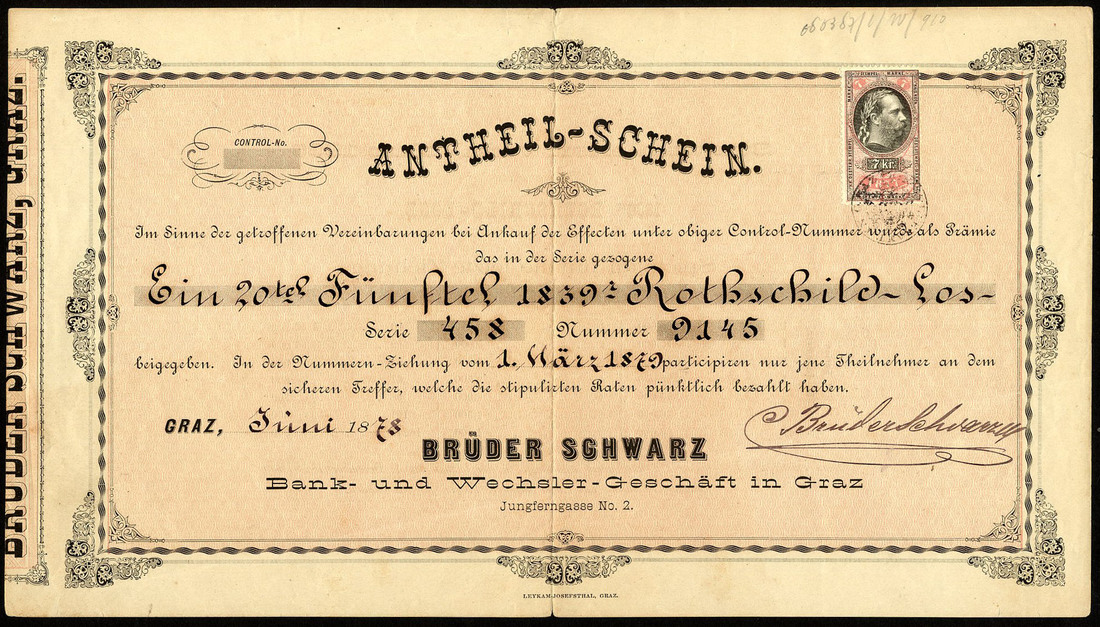 BRÜDER SCHWARZ, GRAZ.
CONTROL-No.
ANTHEIL-SCHEIN.
7 kr.
Im Sinne der getroffenen Vereinbarungen bei Ankauf der Effecten unter obiger Control-Nummer wurde als Prämie
das in der Serie gezogene
Ein 20tel Fünftel 1839r Rothschild-Los-
Serie 458 Nummer 9145
beigegeben. In der Nummern-Ziehung vom 1. März 1879 participiren nur jene Theilnehmer an dem
sicheren Treffer, welche die stipulirten Raten pünktlich bezahlt haben.
GRAZ, Juni 1878
Brüder Schwarz
BRÜDER SCHWARZ
Bank- und Wechsler-Geschäft in Graz
Jungferngasse No. 2.
LEYKAM-JOSEFSTHAL, GRAZ.